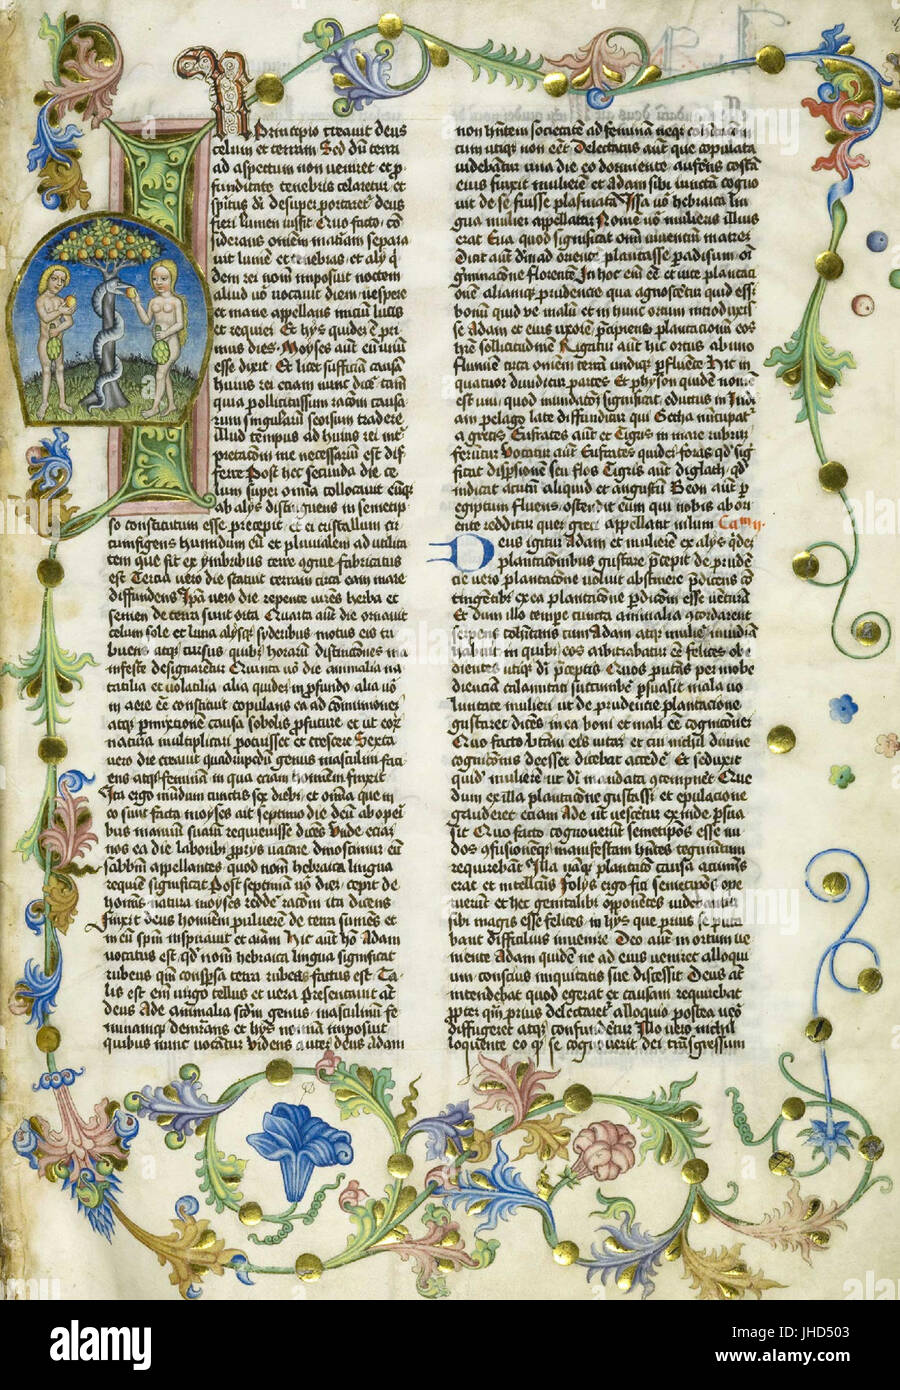 In Principio creauit deus
celum et terram Sed dū terra
ad aspectum non veniret et ꝓ
funditate tenebris celaretur et
spūs dī desuper portaret deus
fieri lumen iussit Quo facto cō
siderans omnem materiam separa
uit lumē et tenebras et aly qͥ
dem rei nom imposuit noctem
aliud vo vocauit diem vespere
et mane appellans lucis
et requiei Et hys quidē est pri
mus dies Moyses aūt eū vnū
esse dixit Et licet sufficiā causā
huius rei eciam nunc dicē tam̄
quia pollicitus sum racom̄ causa
rum singularum seorsum tradere
illud tempus ad huius rei inter
pretacom̄ me necessariū est dif
ferre Post hec secunda die ce
lum super omnia collocauit eūqꝫ
ab alys distinguens in semetip
so constitutum esse precepit et ei cristallum cir
cumfigens humidum eū et pluuialem ad utilita
tem que sit ex ymbribus terre fabricatus
est Tercia vero die statuit terram circa eam mare
diffundens Ipā vero die repente vires herba et
semen de terra sunt orta Quarta aūt die ornauit
celum sole et luna alysqꝫ syderibus motus eis tri
buens atqꝫ cursus quibꝫ horarū distincciones ma
nifeste designarentur Quinta vo die animalia na
tatilia et volatilia alia quidem in ꝓfundo alia vo
in aere eē constituit copulans ea ad cōmunionem
atqꝫ ꝑmixcionem causa sobolis ꝓfuture et ut eoꝝ
natura multiplicari potuisset et crescere Sexta
vero die creauit quadrupedū genus masculum faci
ens atqꝫ feminam in qua eciam hominem finxit
Ita ergo mundum cunctis sex diebꝫ et omnia que in
eo sunt facta moyses ait septimo die deū ab operi
bus manuū suaꝝ requieuisse dicēs Vnde eciā
nos ea die laboribꝫ ꝓprys vacare dinoscimur eū
sabbm̄ appellantes quod nom hebraica lingua
requiem significat Post septimum vo diem cepit de
hominis natura moyses reddere racom̄ ita dicens
Finxit deus hominem puluere de terra sumēs et
in eū spm̄ inspirauit et aīam Hic aūt hō Adam
vocatus est qd nom hebraica lingua significat
rubens qm̄ conspsa terra rubea factus est Ta
lis est em̄ virgo tellus et vera Presentauit aūt
deus Ade animalia scdm̄ genus masculinū fe
minamqꝫ demrans et hys nomina imposuit
quibus nunc vocantur Videns autem deus Adam
non hūtem societatē ad feminam neqꝫ cohabitaci
cum utiqꝫ non eēt Delectatus aūt que copulata
videbātur vna die eo dormiente auferens costam
eius finxit mulierē et Adam sibi iunctā cogno
uit de se fuisse plasmatā Issa vo hebraica lin
gua mulier appellatur Nomē vo mulieris illius
erat Eua quod significat om̄ viuentium matrem
Dicit aūt dm̄ ad orientē plantasse paradisum om̄
germinacione florentē In hoc em̄ eē et vite plantaci
onem aliamqꝫ prudencie qua agnoscetur quid esset
bonū quid ve malū et in hunc ortum introduxis
se Adam et eius uxorē ꝓcipiens plantacionū eos
hrē sollicitudinē Rigatur aūt hic ortus ab uno
flumine circa omnem terrā undiqꝫ ꝓfluente Hic in
quatuor diuiditur partes Et physon quidē nomē
est uni quod inundacōm significat eductus in Indi
am pelago late diffunditur qui Ganges nūcupatur
a grecis Eufrates aūt et Tigris in mare rubrū
feruntur Vocatur aūt Eufrates quidem foras qd sig
nificat dispersionem seu flos Tigris aūt diglath qd
indicat acutū aliquid et angustū Geon aūt per
egiptum fluens ostendit eum qui nobis ab ori
ente redditur quem greci appellant nilum Cam ij
Deus igitur Adam et mulierē ex alys quidem
plantacionibus gustare ꝓcepit de pruden
cie vero plantacione voluit abstinere ꝓdicens cō
tingentibꝫ ex ea plantacione ꝑdicōm esse venturā
Et dum illo tempore cuncta animalia concordarent
serpens cohabitans cum Adam atqꝫ muliere inuidiā
habuit in quibꝫ eos arbitrabatur eē felices obe
dientes utiqꝫ dī ꝓceptis Quos putās per inobe
dienciam calamitati succumbere ꝓsuasit mala vo
luntate mulieri ut de prudencie plantacione
gustaret dicens in ea boni et mali eē cognicionem
Quo facto btam eis vitā et cui nichil diuine
cognicōnis deesset dicebat accedē Et seduxit
quidem mulierē ut dī mandata cōtempneret Que
dum ex illa plantacione gustasset et epulacione
gauderet eciam Ade ut vesceretur exinde ꝓsua
sit Quo facto cognouerūt semetipsos esse nu
dos confusionemqꝫ manifestam habentes tegumentum
requirebāt Illa namqꝫ plantacio causa acuminis
erat et intellectus Folys ergo fici semetipsos ope
ruerunt et hec genitalibus opponentes videbantur
sibi magis esse felices in hys que prius se puta
bant difficilius inuenire Deo aūt in ortum ve
niente Adam quidē ne ad eius veniret alloquiū
um conscius iniquitatis sue discessit Deus aūt
intendebat quod egerat et causam requirebat
ꝓpter quam prius delectaretur alloquio postea vero
diffugeret atqꝫ confunderetur Illo vero nichil
loquente eo qꝫ se cognouerit dei transgressum
alamy stock photo
JHD503
www.alamy.com